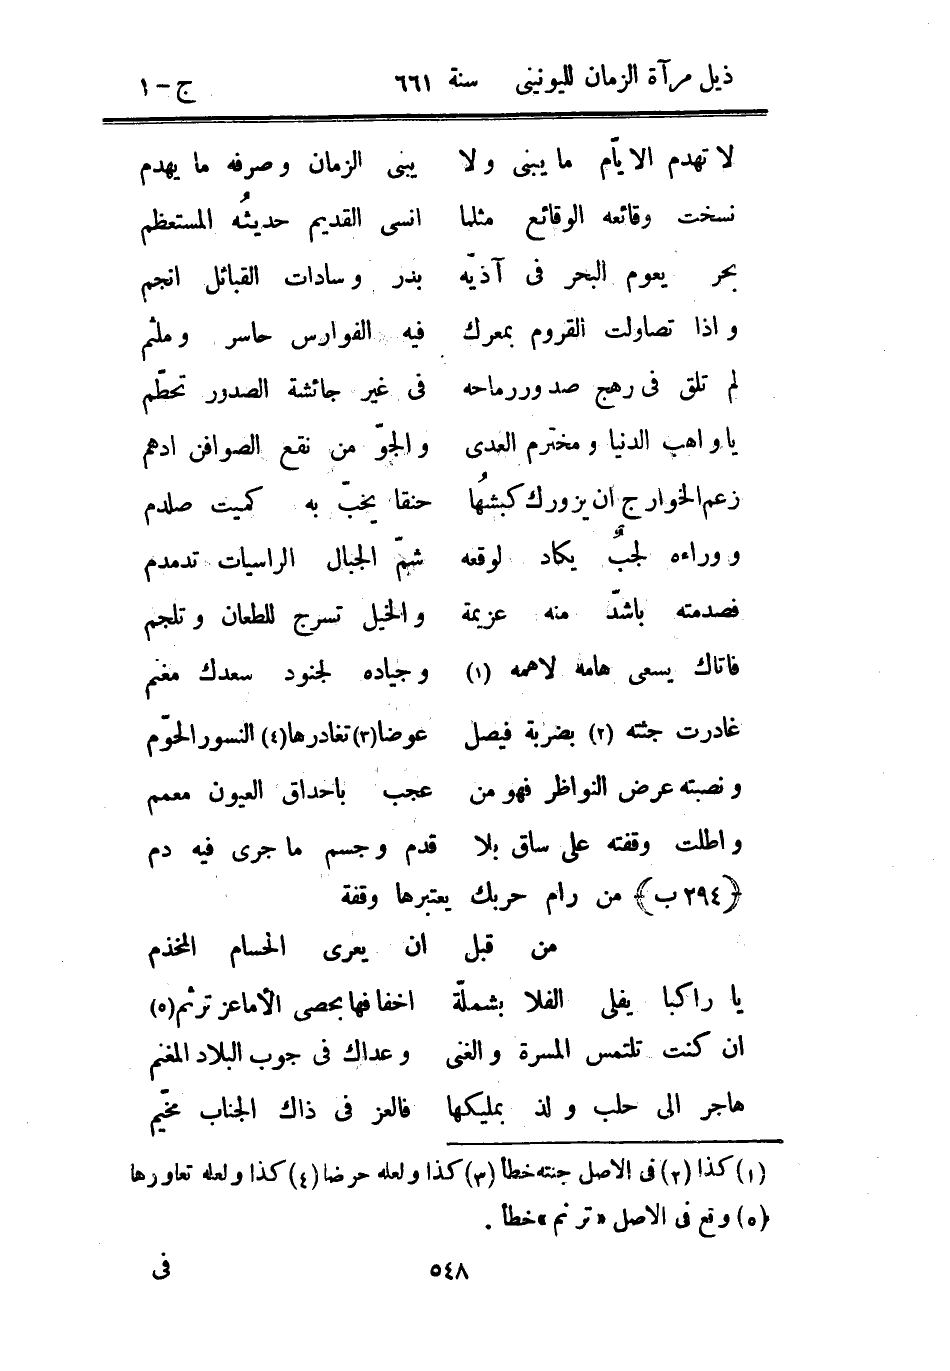 ذيل مرآة الزمان لليونينى سنة ٦٦١ ج - ١
لا تهدم الايّام ما يبنى ولا يبنى الزمان وصرفه ما يهدم
نسخت وقائعه الوقائع مثلما انسى القديم حديثُه المستعظم
بحر يعوم البحر فى آذيّه بدر وسادات القبائل انجم
واذا تصاولت القروم بمعرك فيه الفوارس حاسر وملثم
لم تلق فى رهج صدور رماحه فى غير جائشة الصدور تحطّم
يا واهب الدنيا ومخترم العدى والجوّ من نقع الصوافن ادهم
زعم الخوارج ان يزورك كبشهُا حنقا يخبّ به كميت صلدم
ووراءه لجبٌ يكاد لوقعه شمّ الجبال الراسيات تدمدم
فصدمته باشدّ منه عزيمة والخيل تسرج للطعان وتلجم
فاتاك يسعى هامه لاهمه (١) وجياده لجنود سعدك مغنم
غادرت جثته (٢) بضربة فيصل عوضا (٣) تغادرها (٤) النسور الحوّم
ونصبته عرض النواظر فهو من عجب باحداق العيون معمم
واطلت وقفته على ساق بلا قدم وجسم ما جرى فيه دم
﴿٢٩٤ ب﴾ من رام حربك يعتبرها وقفة
من قبل ان يعرى الحسام المخذم
يا راكبا يفلى الفلا بشملّة اخفافها بحصى الأماعز ترثم (٥)
ان كنت تلتمس المسرة والغنى وعداك فى جوب البلاد المغنم
هاجر الى حلب ولذ بمليكها فالعز فى ذاك الجناب مخيّم
(١) كذا (٢) فى الاصل جنته خطأ (٣) كذا ولعله حرضا (٤) كذا ولعله تعاورها
(٥) وقع فى الاصل «ترنم» خطأ .
٥٤٨ فى